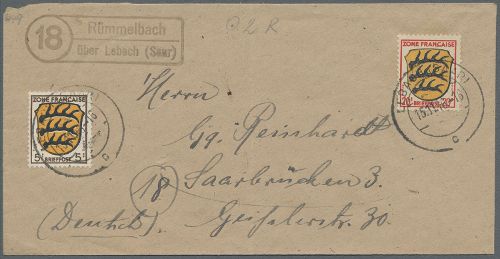 18 Rümmelbach
über Lebach (Saar)
P2R
ZONE FRANÇAISE
20 BRIEFPOST 20
ZONE FRANÇAISE
5 BRIEFPOST 5
c
c
Herrn
Gg. Reinhardt
18 Saarbrücken 3.
(Deutsch) Geißlerstr. 30.